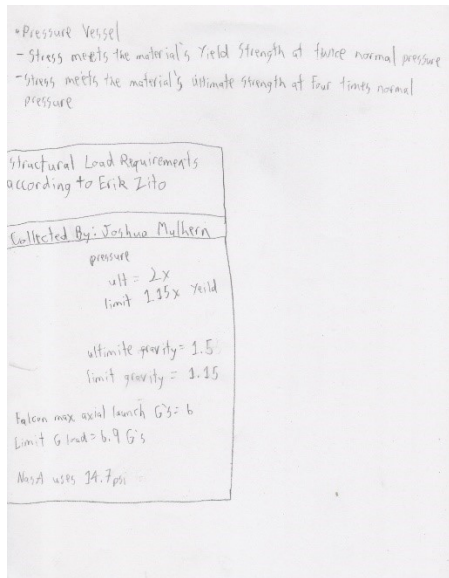 •Pressure Vessel
- Stress meets the material's Yield Strength at twice normal pressure
- Stress meets the material's ultimate strength at Four times normal
pressure
Structural Load Requirements
according to Erik Zito
Collected By: Joshua Mulhern
pressure
ult = 2x
limit 1.15x Yeild
ultimite gravity = 1.5
limit gravity = 1.15
Falcon max axial launch G's = 6
Limit G load = 6.9 G's
NasA uses 14.7 psi